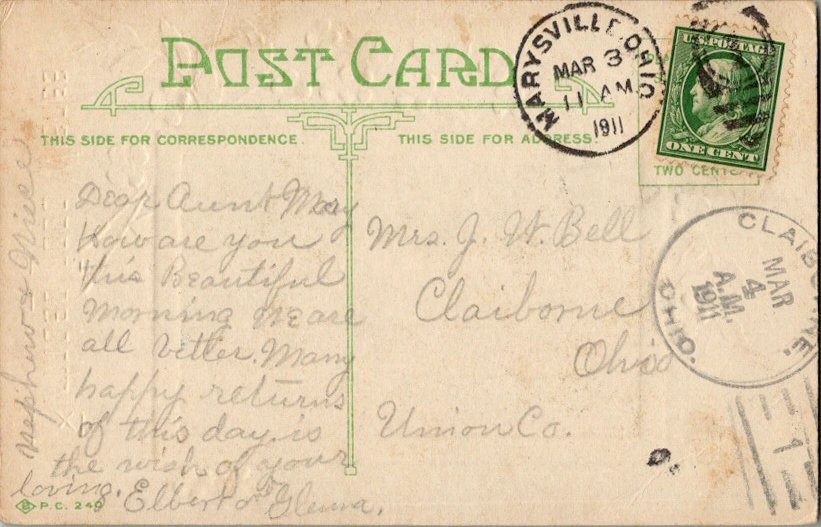 POST CARD
THIS SIDE FOR CORRESPONDENCE.
THIS SIDE FOR ADDRESS.
MARYSVILLE, OHIO
MAR 3
11 AM
1911
U.S. POSTAGE
ONE CENT
TWO CENTS
Dear Aunt May
How are you
this Beautiful
Morning We are
all better. Many
happy returns
of this day is
the wish of your
loving.
Elbert & Glenna.
Nephew &
Mrs. J. W. Bell
Claiborne
Ohio
Union Co.
CLAIBORNE.
MAR
4
A.M.
1911
OHIO.
1
P.C. 240